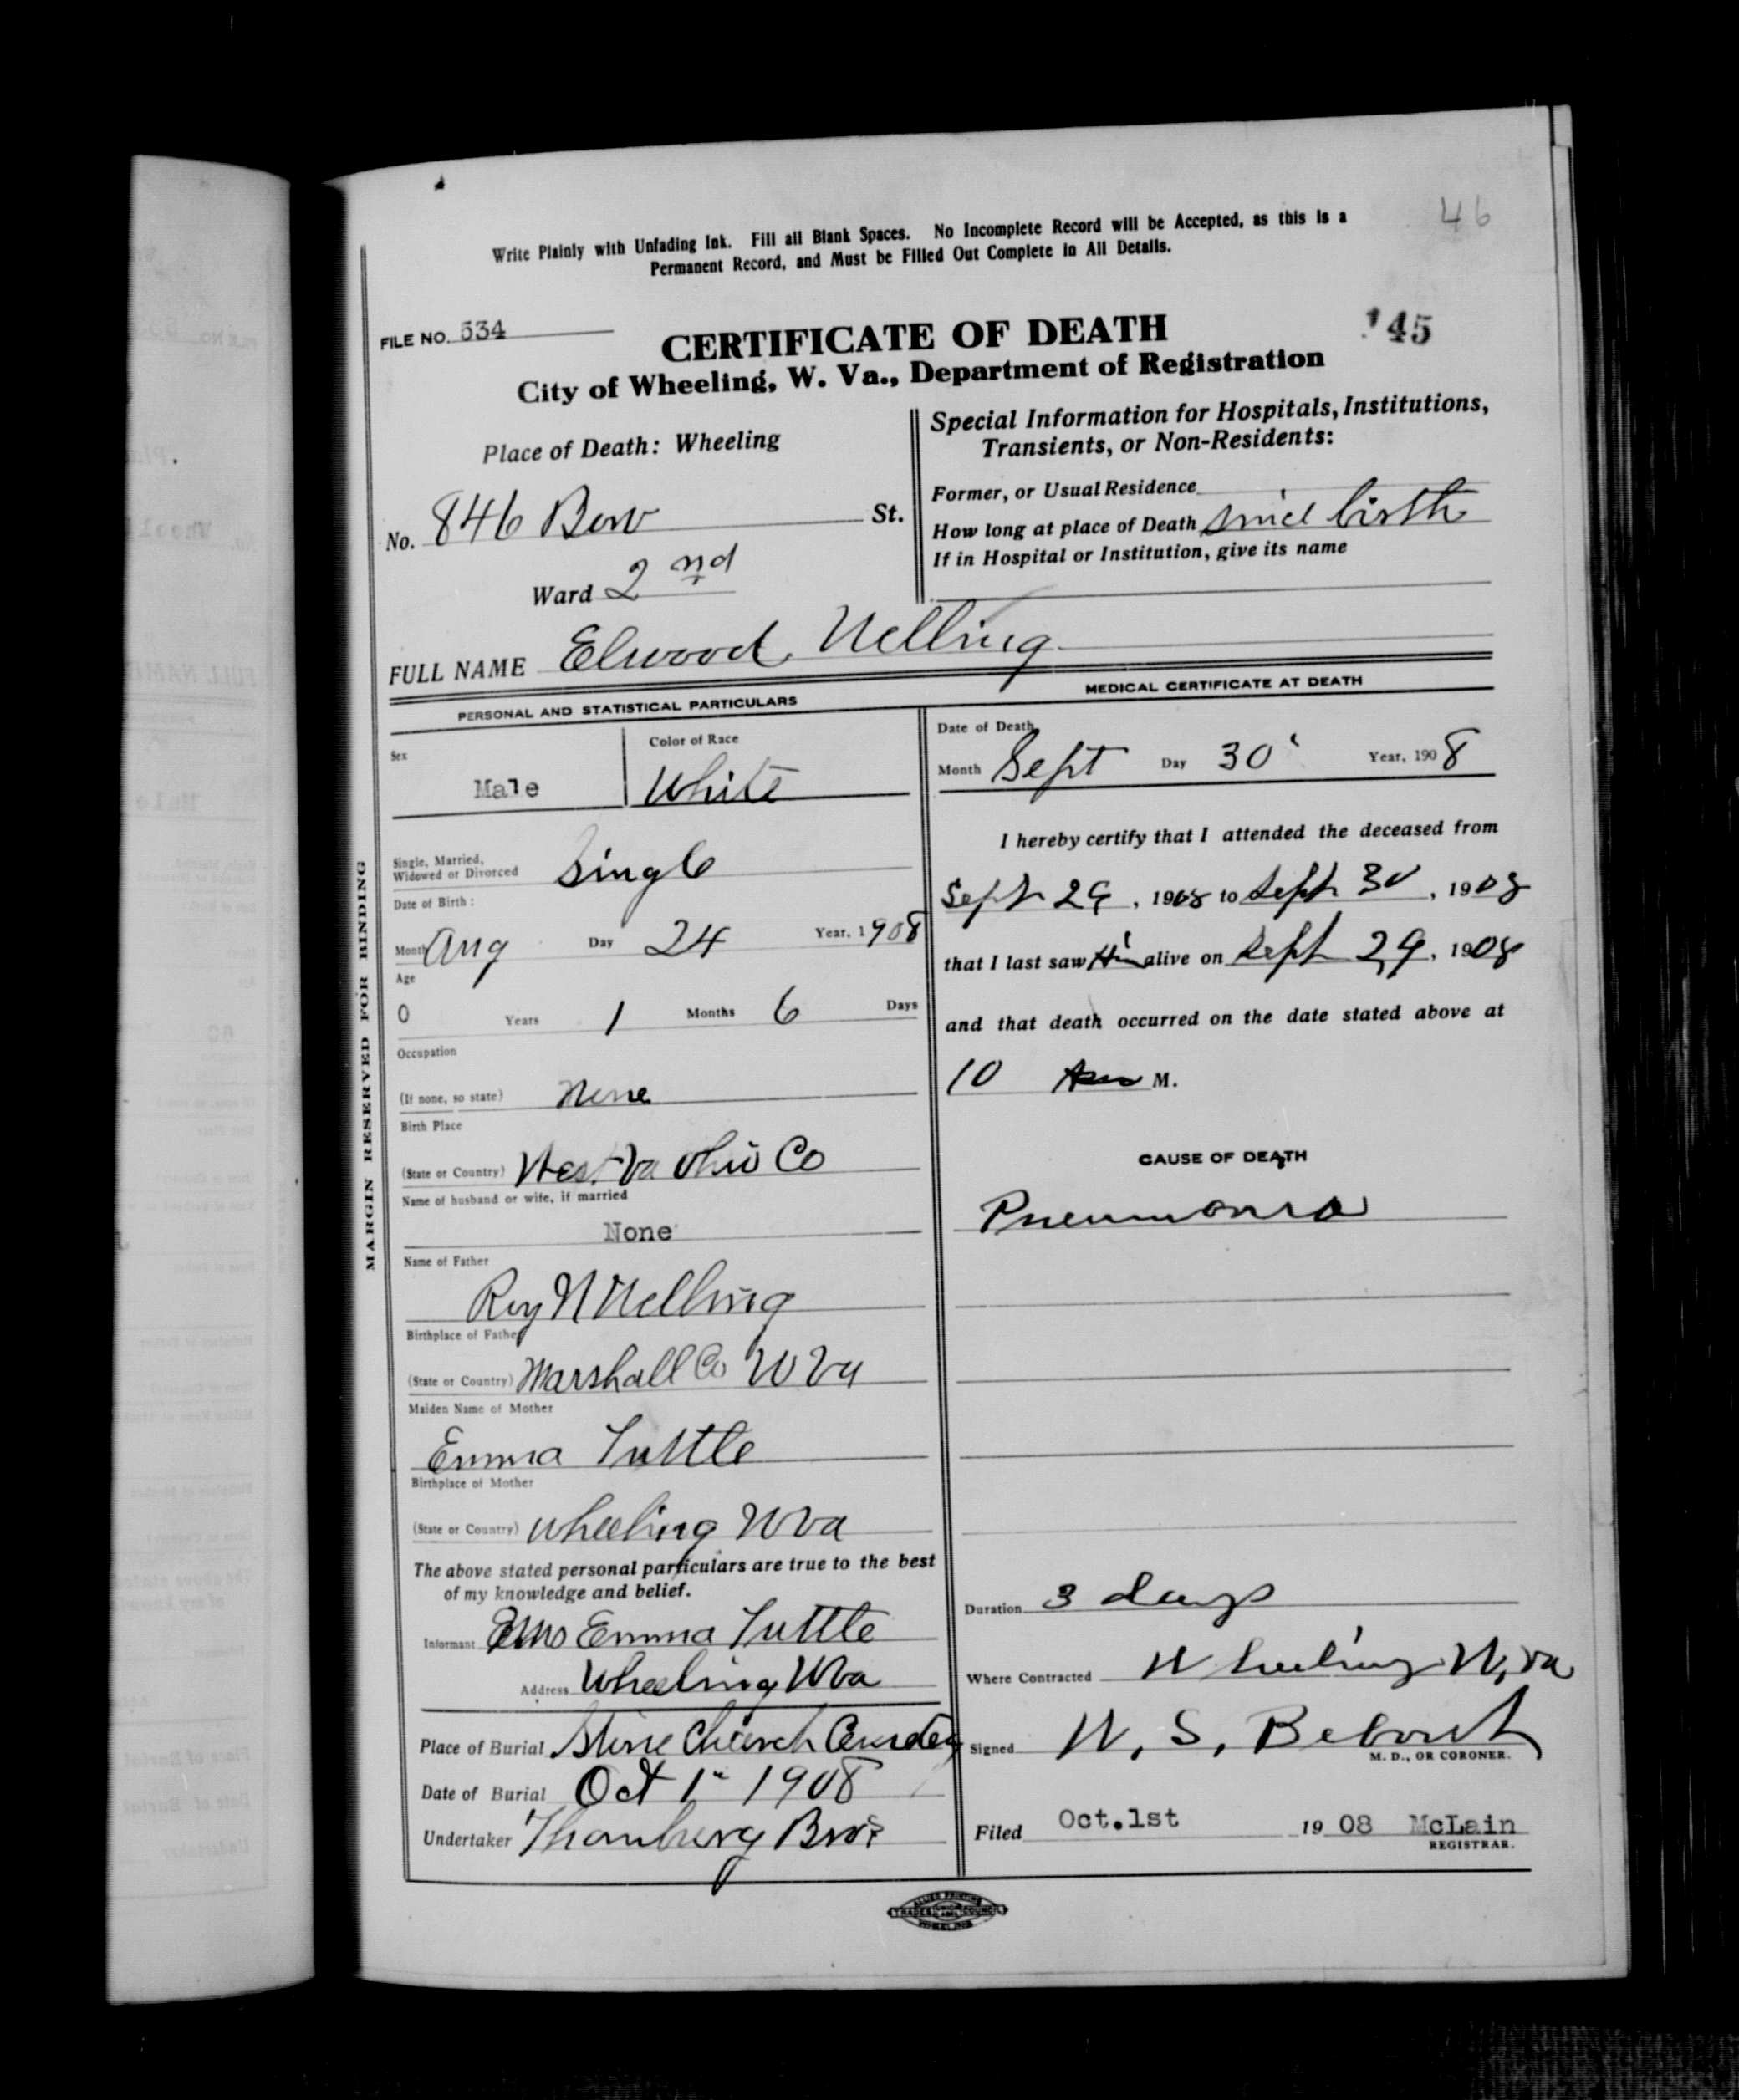 46
Write Plainly with Unfading Ink. Fill all Blank Spaces. No Incomplete Record will be Accepted, as this is a
Permanent Record, and Must be Filled Out Complete in All Details.
FILE NO. 534
CERTIFICATE OF DEATH
145
City of Wheeling, W. Va., Department of Registration
Place of Death: Wheeling
No. 846 Bow St.
Ward 2nd
Special Information for Hospitals, Institutions,
Transients, or Non-Residents:
Former, or Usual Residence
How long at place of Death since birth
If in Hospital or Institution, give its name
FULL NAME Elwood Welling
PERSONAL AND STATISTICAL PARTICULARS
Sex
Male
Color of Race
White
Single, Married,
Widowed or Divorced Single
Date of Birth:
Month Aug Day 24 Year, 1908
Age
0 Years 1 Months 6 Days
Occupation
(If none, so state) None
Birth Place
(State or Country) West Va Ohio Co
Name of husband or wife, if married
None
Name of Father
Roy N Welling
Birthplace of Father
(State or Country) Marshall Co W Va
Maiden Name of Mother
Emma Tuttle
Birthplace of Mother
(State or Country) Wheeling W Va
The above stated personal particulars are true to the best
of my knowledge and belief.
Informant Mrs Emma Tuttle
Address Wheeling W Va
Place of Burial Stone Church Cemetery
Date of Burial Oct 1st 1908
Undertaker Thornburg Bros
MEDICAL CERTIFICATE AT DEATH
Date of Death
Month Sept Day 30 Year, 1908
I hereby certify that I attended the deceased from
Sept 29, 1908 to Sept 30, 1908
that I last saw Him alive on Sept 29, 1908
and that death occurred on the date stated above at
10 M.
CAUSE OF DEATH
Pneumonia
Duration 3 days
Where Contracted Wheeling W, Va
Signed W. S.
M. D., OR CORONER.
Filed Oct.1st 1908 McLain
REGISTRAR.
MARGIN RESERVED FOR BINDING
ALLIED PRINTING
TRADES COUNCIL
WHEELING